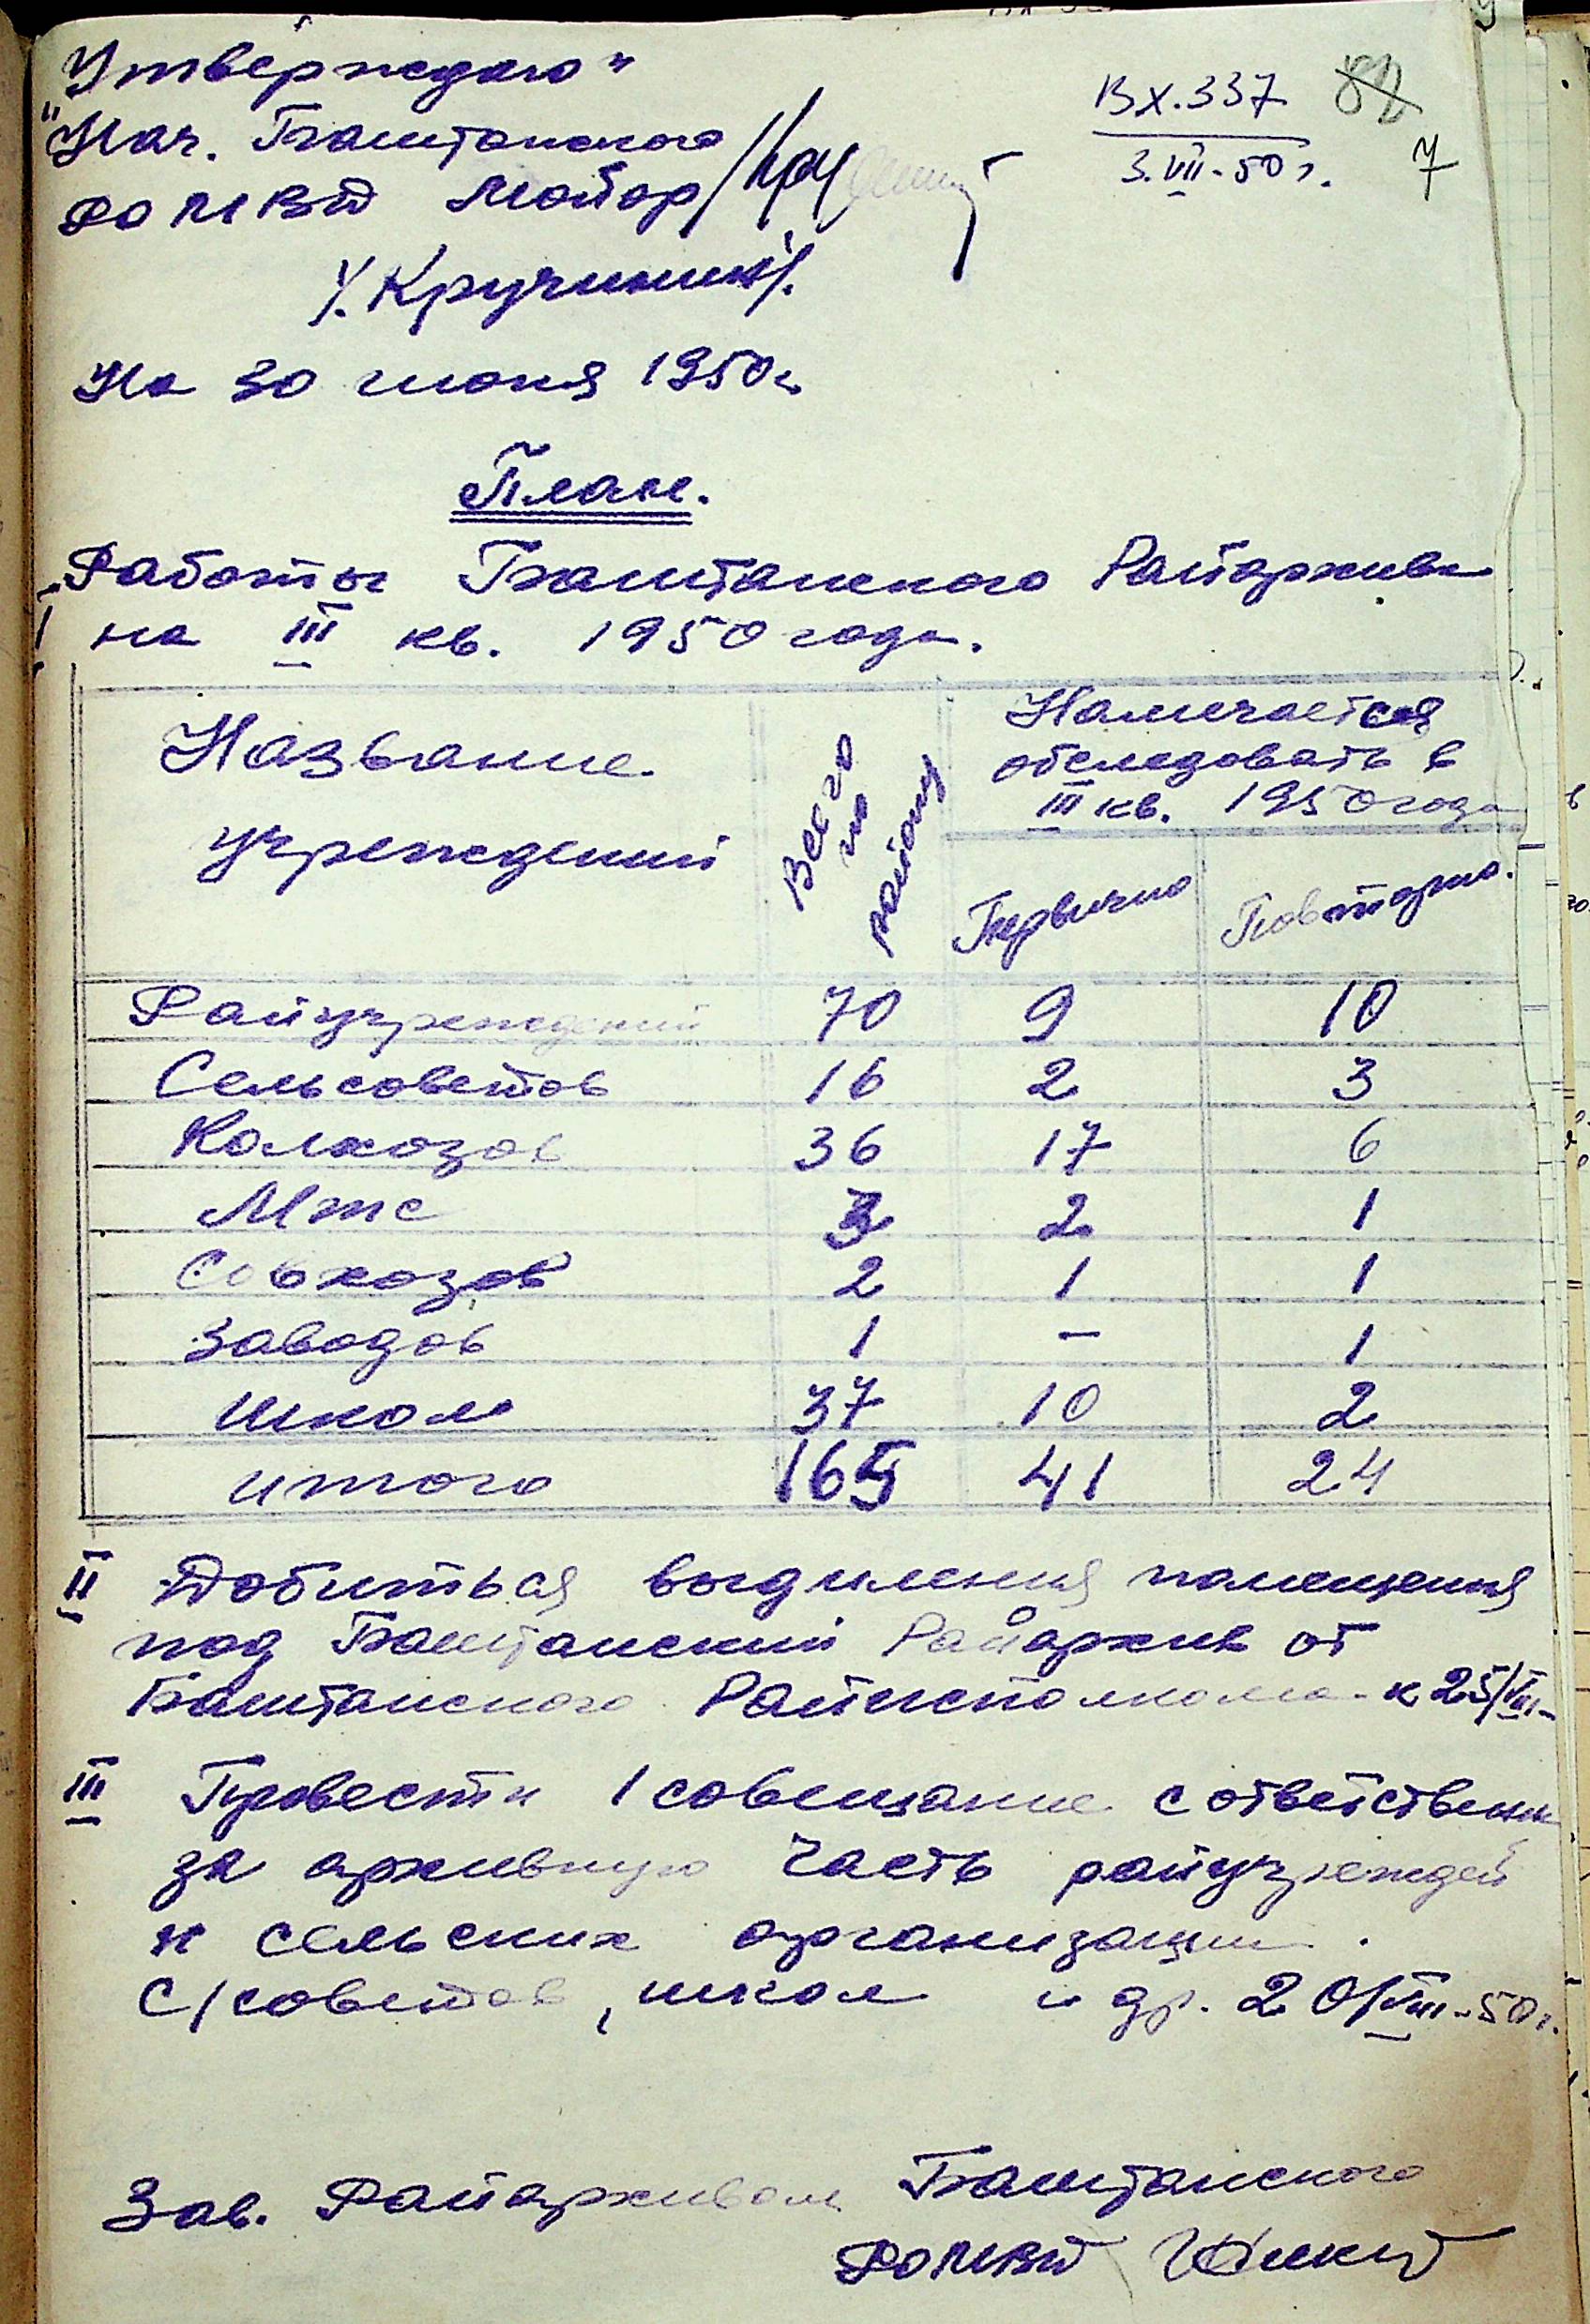 Утверждаю"
"Нач. Баштанского
РОМВД Майор
/. Кручинин/.
Вх. 337
3.VII-50 г.
7
На 30 июня 1950г
План.
Работы Баштанского Райархива
на III кв. 1950 года.
Название учреждений | Всего по району | Намечается обследовать в III кв. 1950 года
Первично | Повторно.
Райучреждений 70 9 10
Сельсоветов 16 2 3
Колхозов 36 17 6
Мтс 3 2 1
Совхозов 2 1 1
Заводов 1 – 1
Школ 37 10 2
итого 165 41 24
II Добиться выделения помещения
под Баштанский Райархив от
Баштанского Райисполкома к 25/VII-
III Провести 1 совещание с ответственн
за архивную часть райучрежден
и сельских организации.
С/советов, школ и др. 20/VIII-50г.
Зав. Райархивом Баштанского
РОМВД